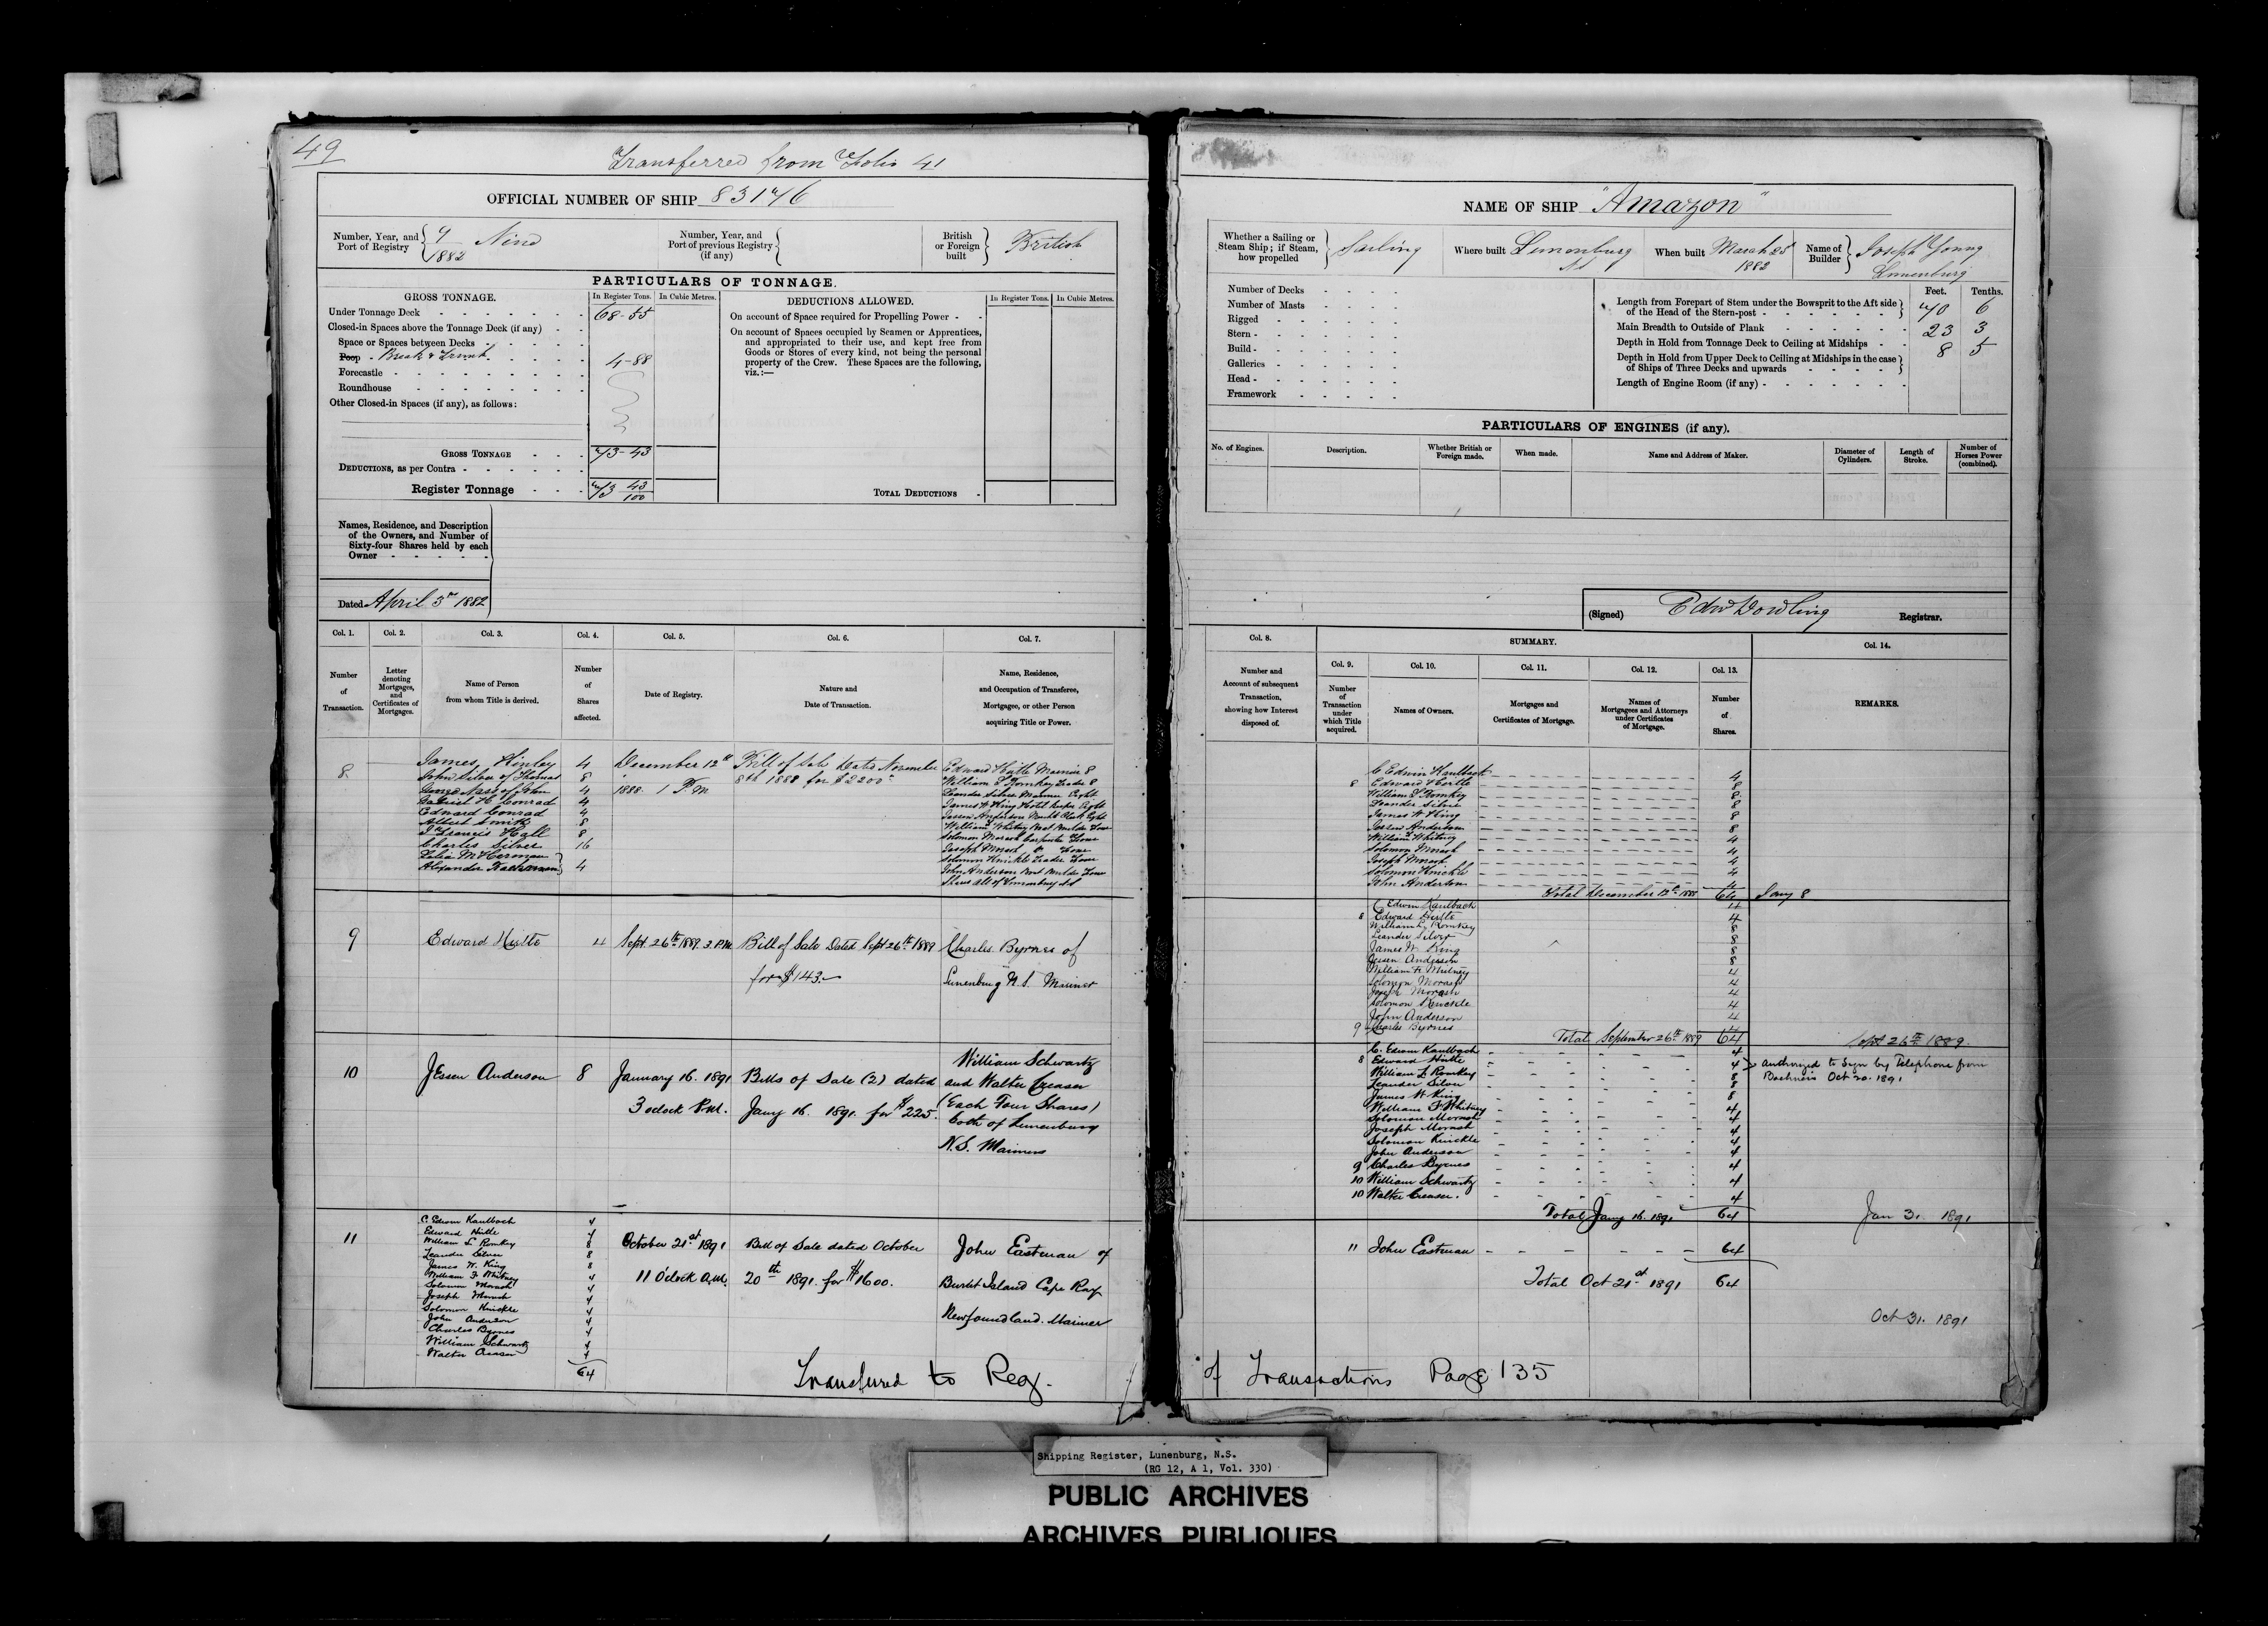 49
Transferred from Folio 41
OFFICIAL NUMBER OF SHIP 83176
Number, Year, and Port of Registry 9/1882 Nine
Number, Year, and Port of previous Registry (if any)
British or Foreign built British
PARTICULARS OF TONNAGE.
GROSS TONNAGE. In Register Tons. In Cubic Metres.
Under Tonnage Deck 68-55
Closed-in Spaces above the Tonnage Deck (if any)
Space or Spaces between Decks
Poop Break & Trunk 4-88
Forecastle
Roundhouse
Other Closed-in Spaces (if any), as follows:
GROSS TONNAGE 73-43
DEDUCTIONS, as per Contra
Register Tonnage 73 43/100
DEDUCTIONS ALLOWED. In Register Tons. In Cubic Metres.
On account of Space required for Propelling Power
On account of Spaces occupied by Seamen or Apprentices,
and appropriated to their use, and kept free from
Goods or Stores of every kind, not being the personal
property of the Crew. These Spaces are the following,
viz.:—
TOTAL DEDUCTIONS
Names, Residence, and Description
of the Owners, and Number of
Sixty-four Shares held by each
Owner
Dated April 3rd 1882
Col. 1. Col. 2. Col. 3. Col. 4. Col. 5. Col. 6. Col. 7.
Number of Transaction.
Letter denoting Mortgages, and Certificates of Mortgages.
Name of Person from whom Title is derived.
Number of Shares affected.
Date of Registry.
Nature and Date of Transaction.
Name, Residence, and Occupation of Transferee, Mortgagee, or other Person acquiring Title or Power.
8
James Hirtley 4
John Silver of Thomas 8
George Nass of John 4
Gabriel H Conrad 4
Edward Conrad 4
Albert Smith 8
J Francis Hall 8
Charles Silver 16
Zelia M Herman
Alexander 4
December 12th
1888. 1 P.M
Bill of Sale Dated November
8th 1888 for $2200
Edward Hirtle Mariner 8
William L Romkey Trader 8
Leander Silver Mariner Eight
James W King Hotel Keeper Eight
Jessen Anderson Eight
William F Whitney Boat Builder Four
Solomon Morash Carpenter Four
Joseph Morash Do Four
Solomon Knickle Trader Four
John Anderson Boat Builder Four
Shares all of Lunenburg NS
9 Edward Hirtle 4 Sept. 26th 1889. 3 P.M. Bill of Sale Dated Sept 26th 1889 Charles Byrnes of
for $143.— Lunenburg N.S. Mariner
10 Jessen Anderson 8 January 16. 1891 Bills of Sale (2) dated William Schwartz
3 oclock P.M. Jany 16. 1891. for $225. and Walter Creaser
(Each Four Shares)
both of Lunenburg
N.S. Mariners
11
C. Edwin Kaulbach 4
Edward Hirtle 4
William L Romkey 8
Leander Silver 8
James W. King 8
William F Whitney 4
Solomon Morash 4
Joseph Morash 4
Solomon Knickle 4
John Anderson 4
Charles Byrnes 4
William Schwartz 4
Walter Creaser 4
64
October 21st 1891 Bill of Sale dated October John Eastman of
11 O'clock A.M. 20th 1891. for $1600. Burnt Island Cape Ray
Newfoundland. Mariner
Transferred to Reg.
NAME OF SHIP "Amazon"
Whether a Sailing or Steam Ship; if Steam, how propelled Sailing
Where built Lunenburg NS
When built March 25 1882
Name of Builder Joseph Young Lunenburg
Number of Decks
Number of Masts
Rigged
Stern
Build
Galleries
Head
Framework
Feet. Tenths.
Length from Forepart of Stem under the Bowsprit to the Aft side
of the Head of the Stern-post 70 6
Main Breadth to Outside of Plank 23 3
Depth in Hold from Tonnage Deck to Ceiling at Midships 8 5
Depth in Hold from Upper Deck to Ceiling at Midships in the case
of Ships of Three Decks and upwards
Length of Engine Room (if any)
PARTICULARS OF ENGINES (if any).
No. of Engines. Description. Whether British or Foreign made. When made. Name and Address of Maker. Diameter of Cylinders. Length of Stroke. Number of Horses Power (combined).
(Signed) Edw Dowling Registrar.
Col. 8. SUMMARY. Col. 14.
Col. 9. Col. 10. Col. 11. Col. 12. Col. 13.
Number and Account of subsequent Transaction, showing how Interest disposed of.
Number of Transaction under which Title acquired.
Names of Owners.
Mortgages and Certificates of Mortgage.
Names of Mortgagees and Attorneys under Certificates of Mortgage.
Number of Shares.
REMARKS.
C Edwin Kaulbach 4
8 Edward Hirtle 8
William L Romkey 8
Leander Silver 8
James W King 8
Jessen Anderson 8
William F Whitney 4
Solomon Morash 4
Joseph Morash 4
Solomon Knickle 4
John Anderson 4
Total December 12th 1888 64 Jany 8
C Edwin Kaulbach 4
8 Edward Hirtle 4
William L Romkey 8
Leander Silver 8
James W King 8
Jessen Anderson 8
William F Whitney 4
Solomon Morash 4
Joseph Morash 4
Solomon Knickle 4
John Anderson 4
9 Charles Byrnes 4
Total September 26th 1889 64 Sept 26th 1889
C. Edwin Kaulbach 4
8 Edward Hirtle 4 authorized to sign by Telephone from
William L Romkey 8 Oct 20. 1891
Leander Silver 8
James W King 8
William F Whitney 4
Solomon Morash 4
Joseph Morash 4
Solomon Knickle 4
John Anderson 4
9 Charles Byrnes 4
10 William Schwartz 4
10 Walter Creaser. 4
Total Jany 16. 1891 64 Jan 31. 1891
11 John Eastman 64
Total Oct 21st 1891 64
Oct 31. 1891
of Transactions Page 135
Shipping Register, Lunenburg, N.S.
(RG 12, A 1, Vol. 330)
PUBLIC ARCHIVES
ARCHIVES PUBLIQUES